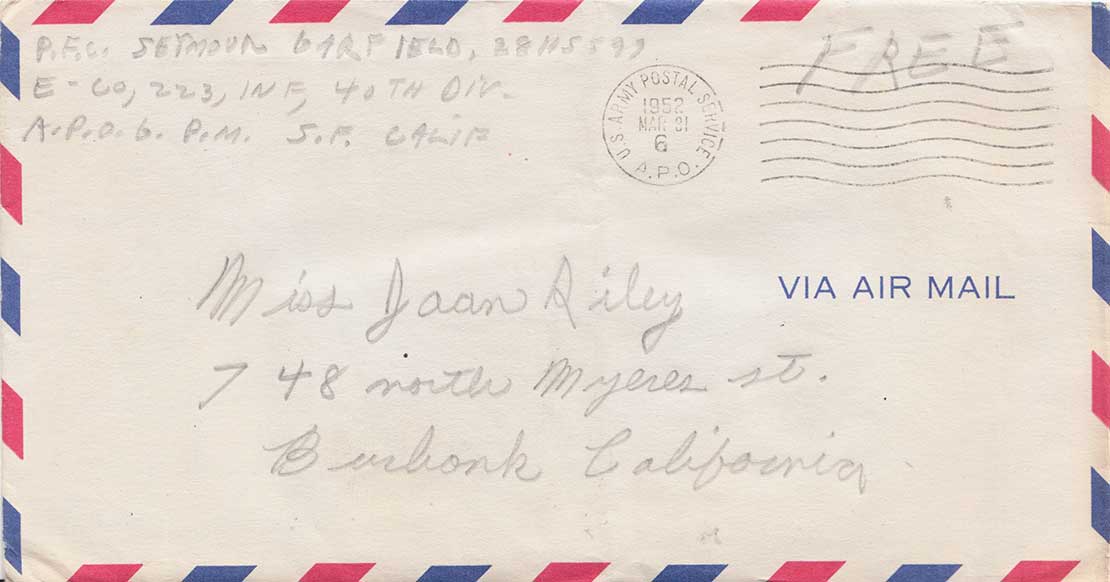 P.F.C. SEYMOUR GARFIELD,
E-CO, 223, INF, 40TH DIV.
A.P.O. 6. P.M. S.F. CALIF
FREE
U.S. ARMY POSTAL SERVICE
1952
MAR 31
6
A.P.O.
Miss Joan Riley
VIA AIR MAIL
748 north Myeres st.
Burbank California